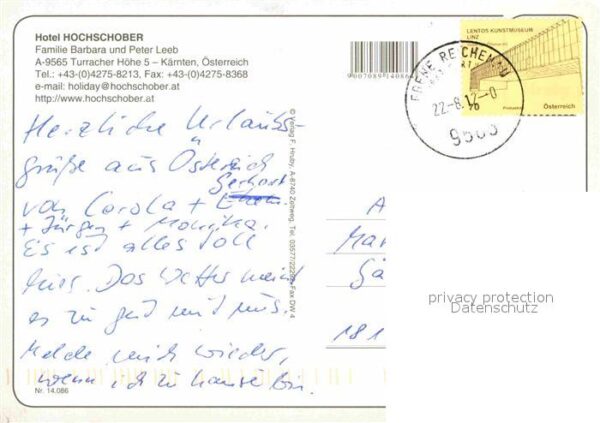 Hotel HOCHSCHOBER
Familie Barbara und Peter Leeb
A-9565 Turracher Höhe 5 – Kärnten, Österreich
Tel.: +43-(0)4275-8213, Fax: +43-(0)4275-8368
e-mail: holiday@hochschober.at
http://www.hochschober.at
Herzliche Urlaubs-
grüße aus Österreich
Gerhart
von Carola +
+ Jürgen + Monika.
Es ist alles toll
hier. Das Wetter meint
es zu gut mit uns.
Melde mich wieder,
wenn ich zu hause bin.
Nr. 14.086
© Verlag F. Hruby, A-8740 Zeltweg, Tel. 03577/22282, Fax DW 4
9007089140864
LENTOS KUNSTMUSEUM
LINZ
Österreich
EBENE REICHENAU
22-8.12-0
9565
A
Mar
Gä
181
privacy protection
Datenschutz